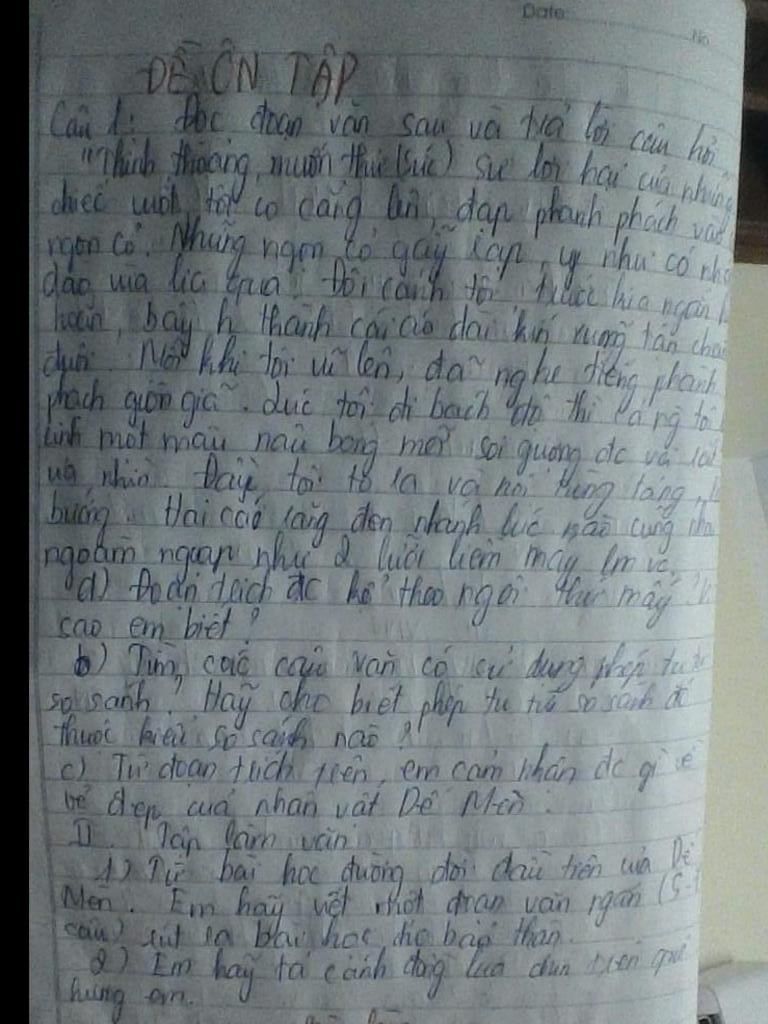 Date
No
ĐỀ ÔN TẬP
Câu 1: Đọc đoạn văn sau và trả lời câu hỏi
"Thỉnh thoảng, muốn thử (sức) sự lợi hại của những
chiếc vuốt, tôi co cẳng lên, đạp phanh phách vào
ngọn cỏ. Những ngọn cỏ gãy rạp, y như có nh
dao vừa lia qua. Đôi cánh tôi, trước kia ngắn h
hoẳn, bây h thành cái áo dài kín xuống tận chấm
đuôi. Mỗi khi tôi vũ lên, đã nghe tiếng phành
phạch giòn giã. Lúc tôi đi bách bộ thì cả ng tôi
rinh một màu nâu bóng mỡ soi gương đc và rất
ưa nhìn. Đầu tôi to ra và nổi từng tảng, b
bướng. Hai cái răng đen nhánh lúc nào cũng nha
ngoàm ngoạp như 2 lưỡi liềm máy lm vc.
a) Đoạn trích đc kể theo ngôi thứ mấy? V
sao em biết?
b) Tìm các câu văn có sử dụng phép tu từ
so sánh? Hãy cho biết phép tu từ so sánh đó
thuộc kiểu so sánh nào?
c) Từ đoạn trích trên, em cảm nhận đc gì về
vẻ đẹp của nhân vật Dế Mèn.
II. Tập làm văn
1) Từ bài học đường đời đầu tiên của Dế
Mèn. Em hãy viết một đoạn văn ngắn (5-7
câu) rút ra bài học cho bản thân.
2) Em hãy tả cánh đồng lúa chín trên quê
hương em.